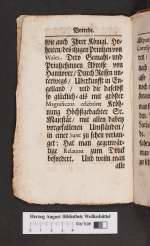 Vorrede.
wie auch Ihrer Königl. Ho-
heiten / des itzigen Printzen von
Wales, Dero Gemahl- und
Printzeßinnen Abreise von
Hannover / Durch-Reisen un-
terwegs / Uberkunfft in En-
geland / und die daselbst
so glücklich- als mit gröster
Magnificentz celebrirte Krö-
nung Höchstgedachter Sr.
Majestät / mit allen dabey
vorgefallenen Umständen /
in einer zu sehen verlan-
get: Hat man gegenwär-
tige Relation zum Druck
befördert. Und weiln man
alle
Herzog August Bibliothek Wolfenbüttel